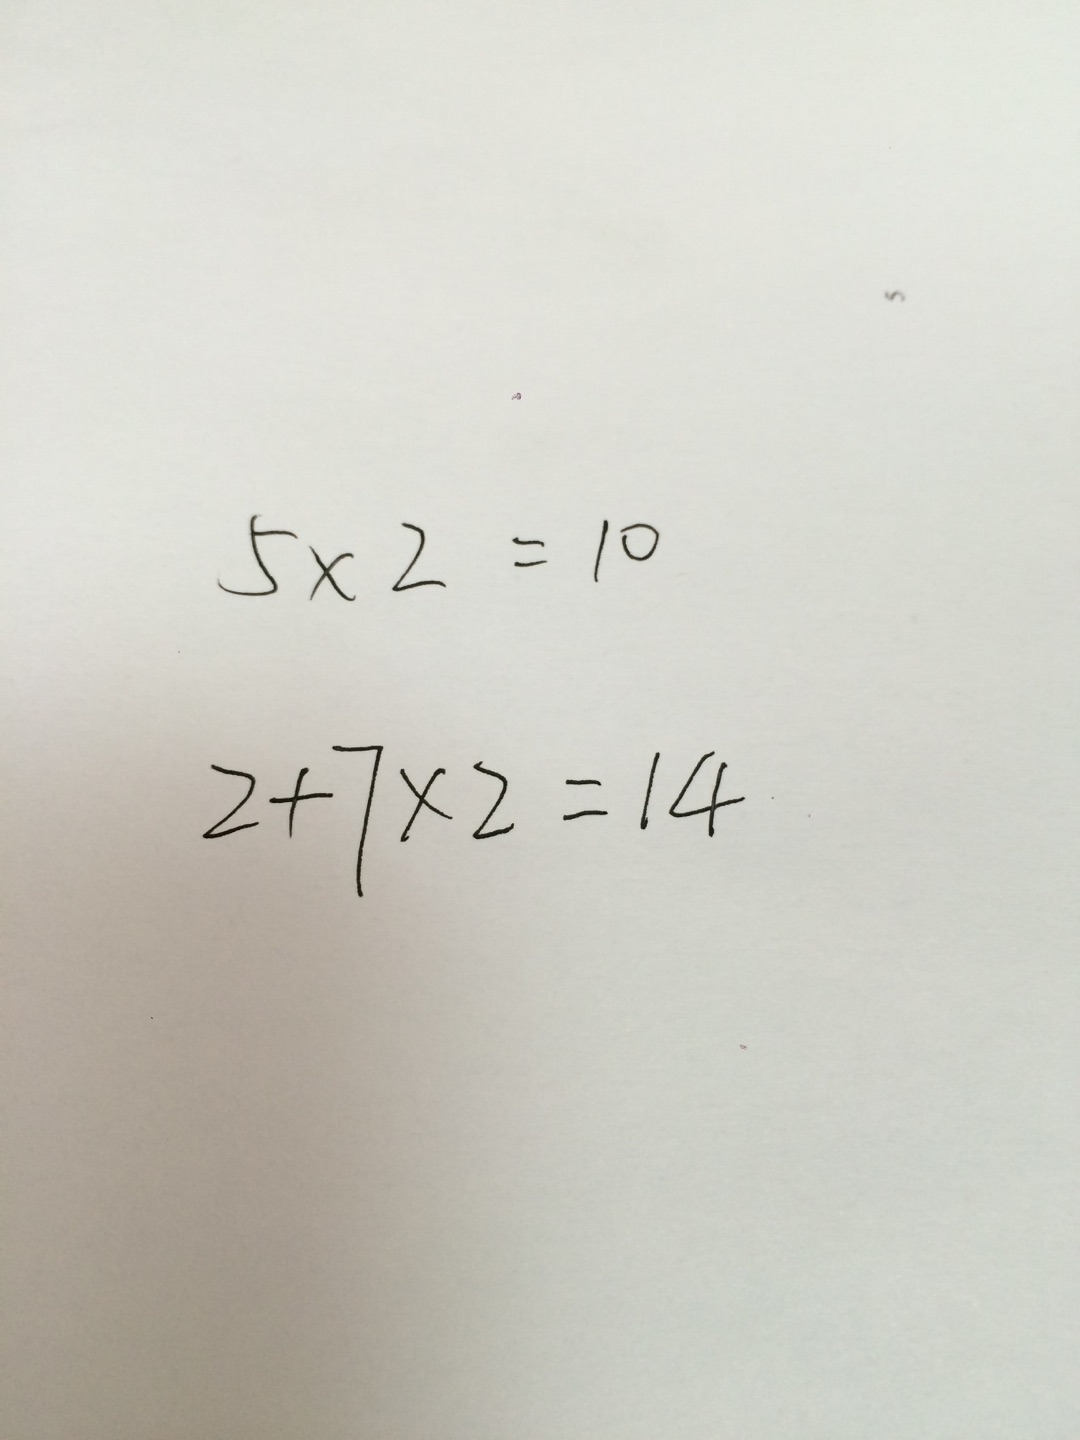 5×2=10
2+7×2=14